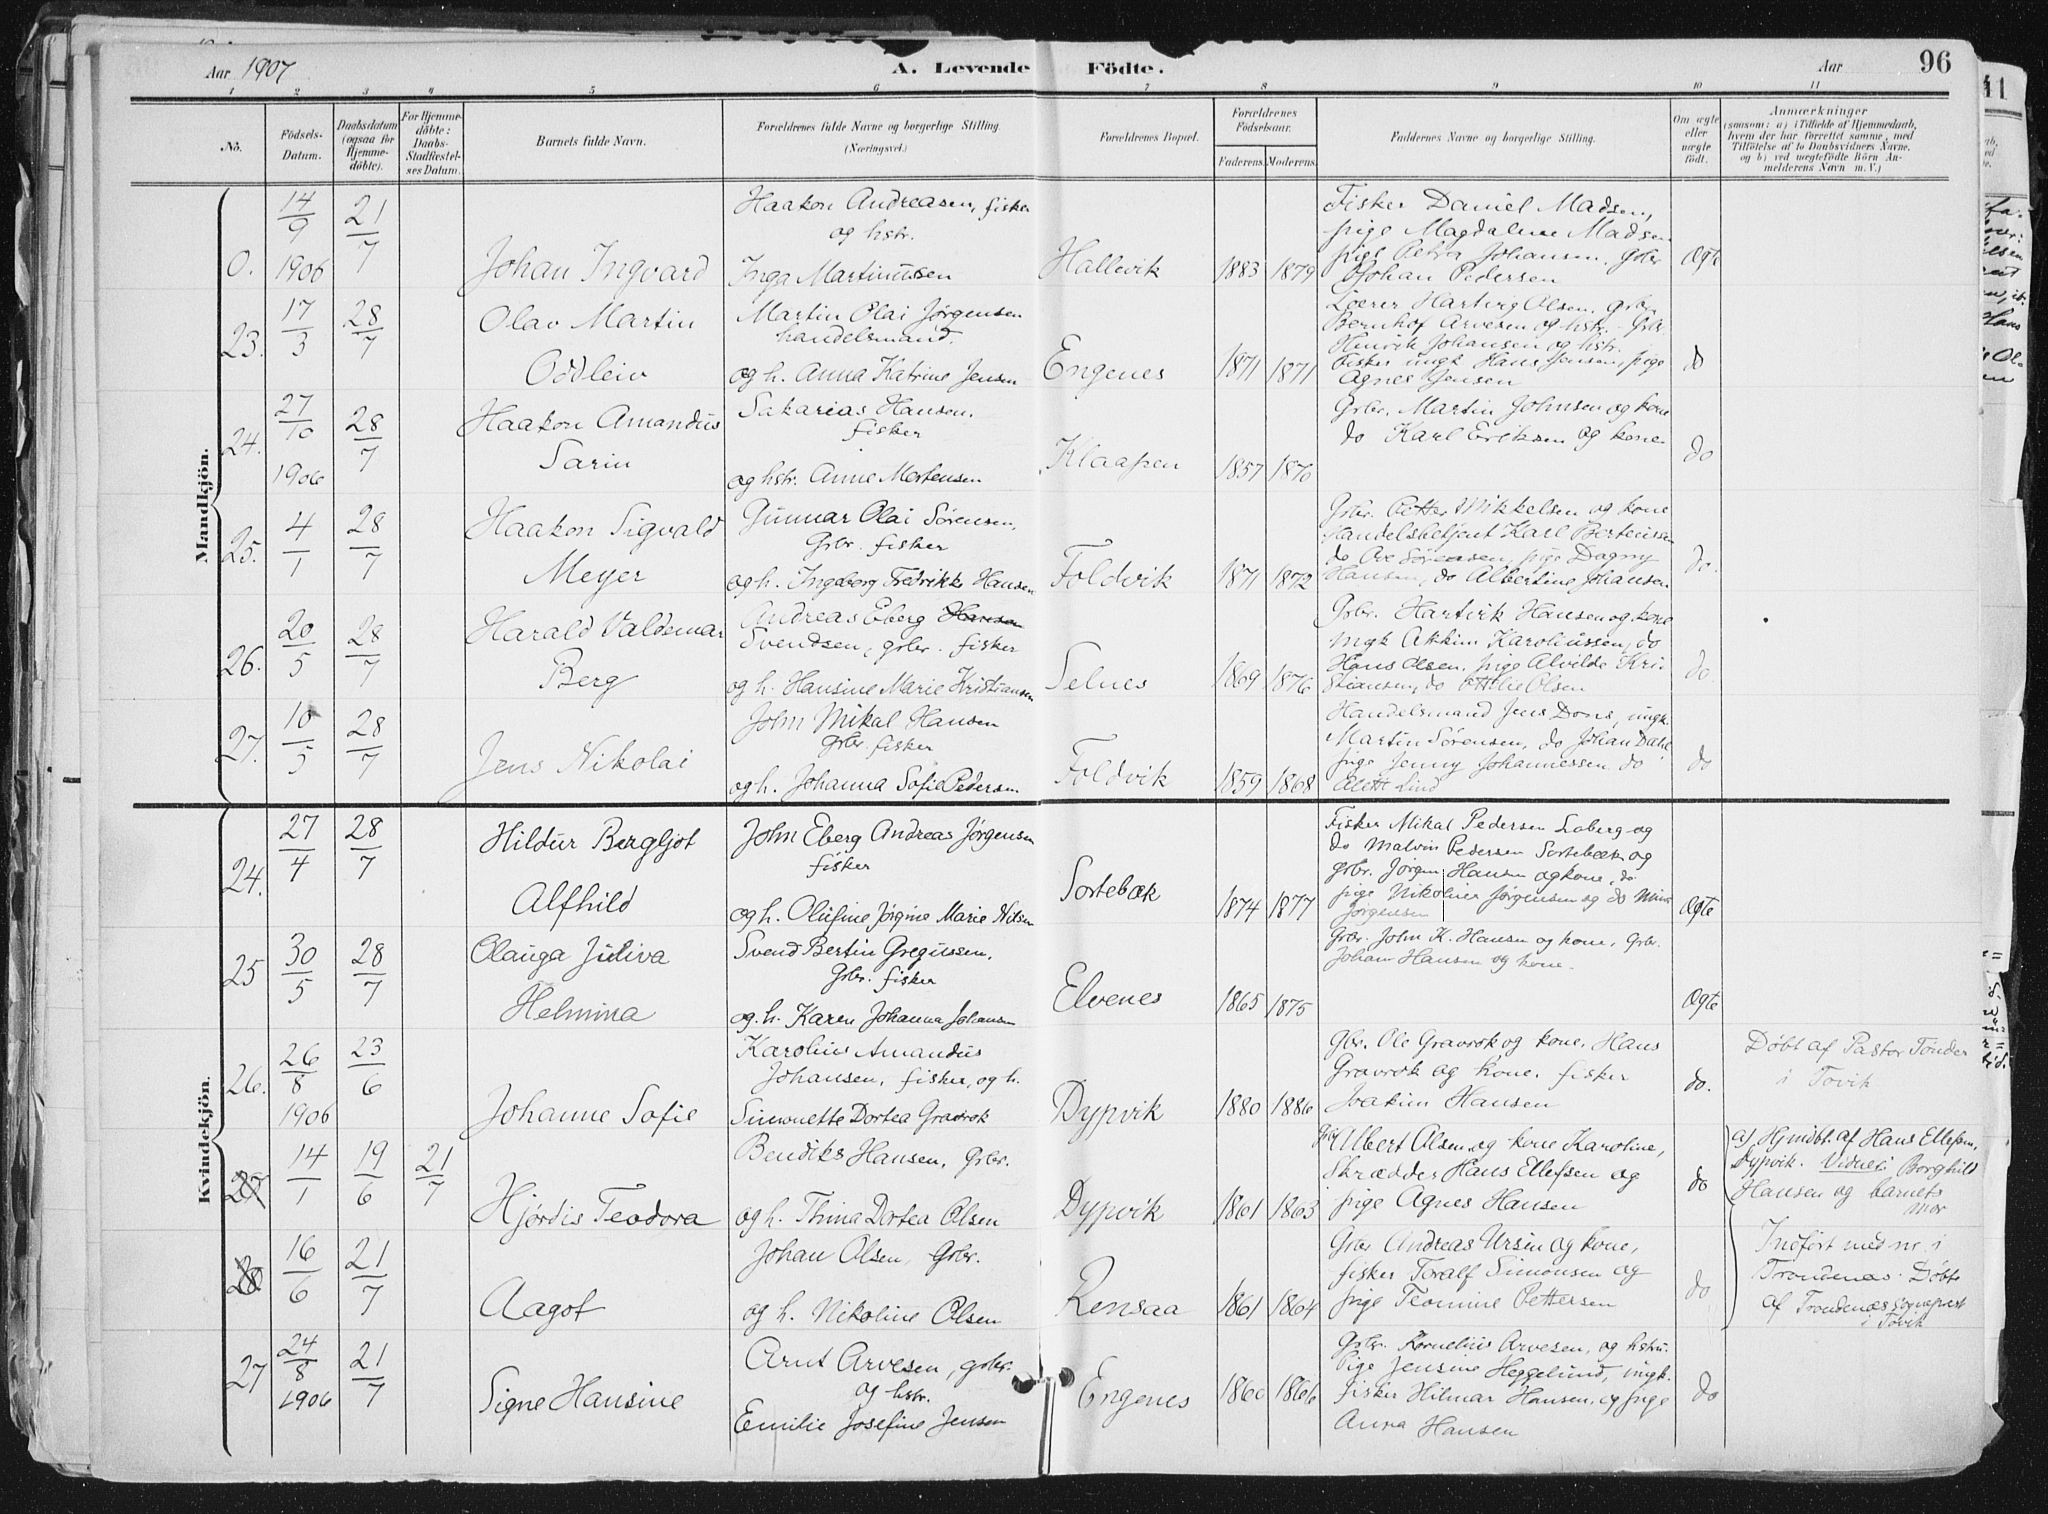 Aar 1907
A. Levende Födte.
Aar
96
1 2 3 4 5 6 7 8 9 10 11
No.
Födsels-Datum.
Daabsdatum (ogsaa for Hjemme-döbte).
For Hjemme-döbte: Daabs-Stadfæstel-ses Datum.
Barnets fulde Navn.
Forældrenes fulde Navne og borgerlige Stilling.
(Næringsvei.)
Forældrenes Bopæl.
Forældrenes Födselsaar.
Faderens. Moderens.
Faddernes Navne og borgerlige Stilling.
Om ægte eller uægte födt.
Anmærkninger
(saasom: a) i Tilfælde af Hjemmedaab,
hvem der har forrettet samme, med
Tilföielse af to Daabsvidners Navne.
og b) ved uægtefödte Börn An-
melderens Navn m. V.)
Mandkjön.
0. 14/9 1906 21/7
Johan Ingvard
Haakon Andreasen, fisker
og hstr.
Inga Martinussen
Hallevik 1883 1879
Fisker Daniel Madsen,
pige Magdalene Madsen
pige Petra Johansen, Grbr
Johan Pedersen
Ægte
23. 17/3 28/7
Olav Martin
Oddleiv
Martin Olai Jørgensen
handelsmand.
og h. Anna Katrine Jensen
Engenes 1871 1871
Lærer Hartvig Olsen, grbr.
Bernhof Arvesen og hstr. Grbr.
Hinrik Johansen og hstr.
fisker ungk Hans Jensen, pige
Agnes Jensen
do
24. 27/10 1906 28/7
Haakon Amandus
Sarin
Sakarias Hansen.
fisker
og hstr. Anne Mortensen
Klaapen 1857 1870
Grbr. Martin Johnsen og kone
do Karl Eriksen og kone
do
25. 4/1 28/7
Haakon Sigvald
Meyer
Gunnar Olai Sørensen,
Grbr. fisker
og h. Ingeborg Fredrikke Hansen
Foldvik 1871 1872
Grbr. Petter Mikkelsen og kone
Handelsbetjent Karl Berteussen
do Ove Sørensen, pige Dagny
Hansen, do Albertine Johansen
do.
26. 20/5 28/7
Harald Valdemar
Berg
Andreas Eberg Hansen
Svendsen, grbr. fisker
og h. Hansine Marie Kristiansen
Selnes 1869 1876
Grbr. Hartvik Hansen og kone
ungk Akkim Karoliussen, do
Hans Olsen, pige Alvilde Kri-
stiansen, do Ottilie Olsen
do.
27. 10/5 28/7
Jens Nikolai
John Mikal Hansen
Grbr. fisker
og h. Johanna Sofie Pedersen
Foldvik 1859 1868
Handelsmand Jens Dons, ungk.
Martin Sørensen, do Johan Dahl
pige Jenny Johannessen do
Alett Lind
do
Kvindekjön.
24. 27/4 28/7
Hildur Bergljot
Alfhild
John Eberg Andreas Jørgensen
fisker
og h. Olufine Jørgine Marie Nilsen
Sortebæk 1874 1877
Fisker Mikal Pedersen Loberg og
do Malvin Pedersen Sortebæk og
grbr. Jørgen Hansen og kone, do
pige Nikoline Jørgensen og do Mina
Jørgensen
Ægte
25 30/5 28/7
Olauga Juliva
Helmina
Svend Bertin Gregussen,
Grbr. fisker
og h. Karen Johanna Johansen
Elvenes 1865 1875
Grbr. John K. Hansen og kone, Grbr.
Johan Hansen og kone.
Ægte
26. 26/8 1906 23/6
Johanne Sofie
Karolius Amandus
Johansen, fisker, og h.
Simonette Dortea Gravrok
Dypvik 1880 1886
Gbr. Ole Gravrok og kone, Hans
Gravrok og kone. fisker
Joakim Hansen
do.
Døbt af Pastor Tønder
i Tovik
27 14/1 19/6 21/7
Hjørdis Teodora
Bendiks Hansen, Grbr.
og h. Thina Dortea Olsen
Dypvik 1861 1863
Grbr Albert Olsen og kone Karoline,
Skrædder Hans Ellefsen og
pige Agnes Hansen
do
a) Hjmdbt. af Hans Ellefsen,
Dypvik. Vidner: Borghild
Hansen og barnets
mor
28 16/6 21/7
Aagot
Johan Olsen, Grbr.
og h. Nikoline Olsen
Rensaa 1861 1864
Grbr Andreas Ursin og kone,
fisker Toralf Simonsen og
pige Teomine Pettersen
do
Indført med nr. i
Trondenæs. Døbt
af Trondenæs sogneprest
i Tovik
27 24/8 1906 21/7
Signe Hansine
Arnt Arvesen, grbr.
og hstr.
Emilie Josefine Jensen
Engenes 1860 1866
Grbr. Kornelius Arvesen, og hstru.
Pige Jensine Heggelund, ungk.
fisker Hilmar Hansen, og pige
Anna Hansen
do